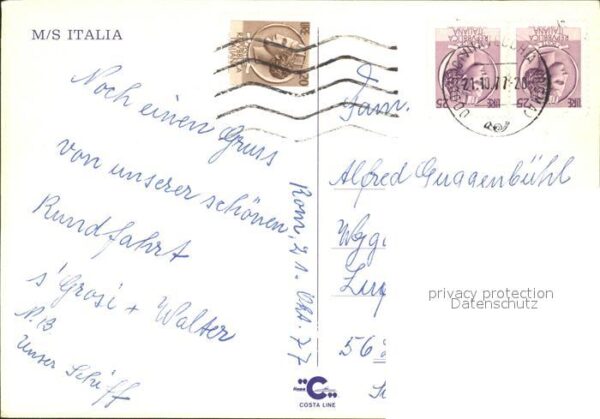 M/S ITALIA
Noch einen Gruss
von unserer schönen
Rundfahrt
s' Grosi + Walter
N.B
Unser Schiff
Rom, 21. Okt. 77
LIRE 20
REPVBBLICA
ITALIANA
REPVBBLICA
ITALIANA
LIRE 25
REPVBBLICA
ITALIANA
LIRE 25
21.10.77-20
Fam.
Alfred Guggenbühl
56
privacy protection
Datenschutz
C
COSTA LINE